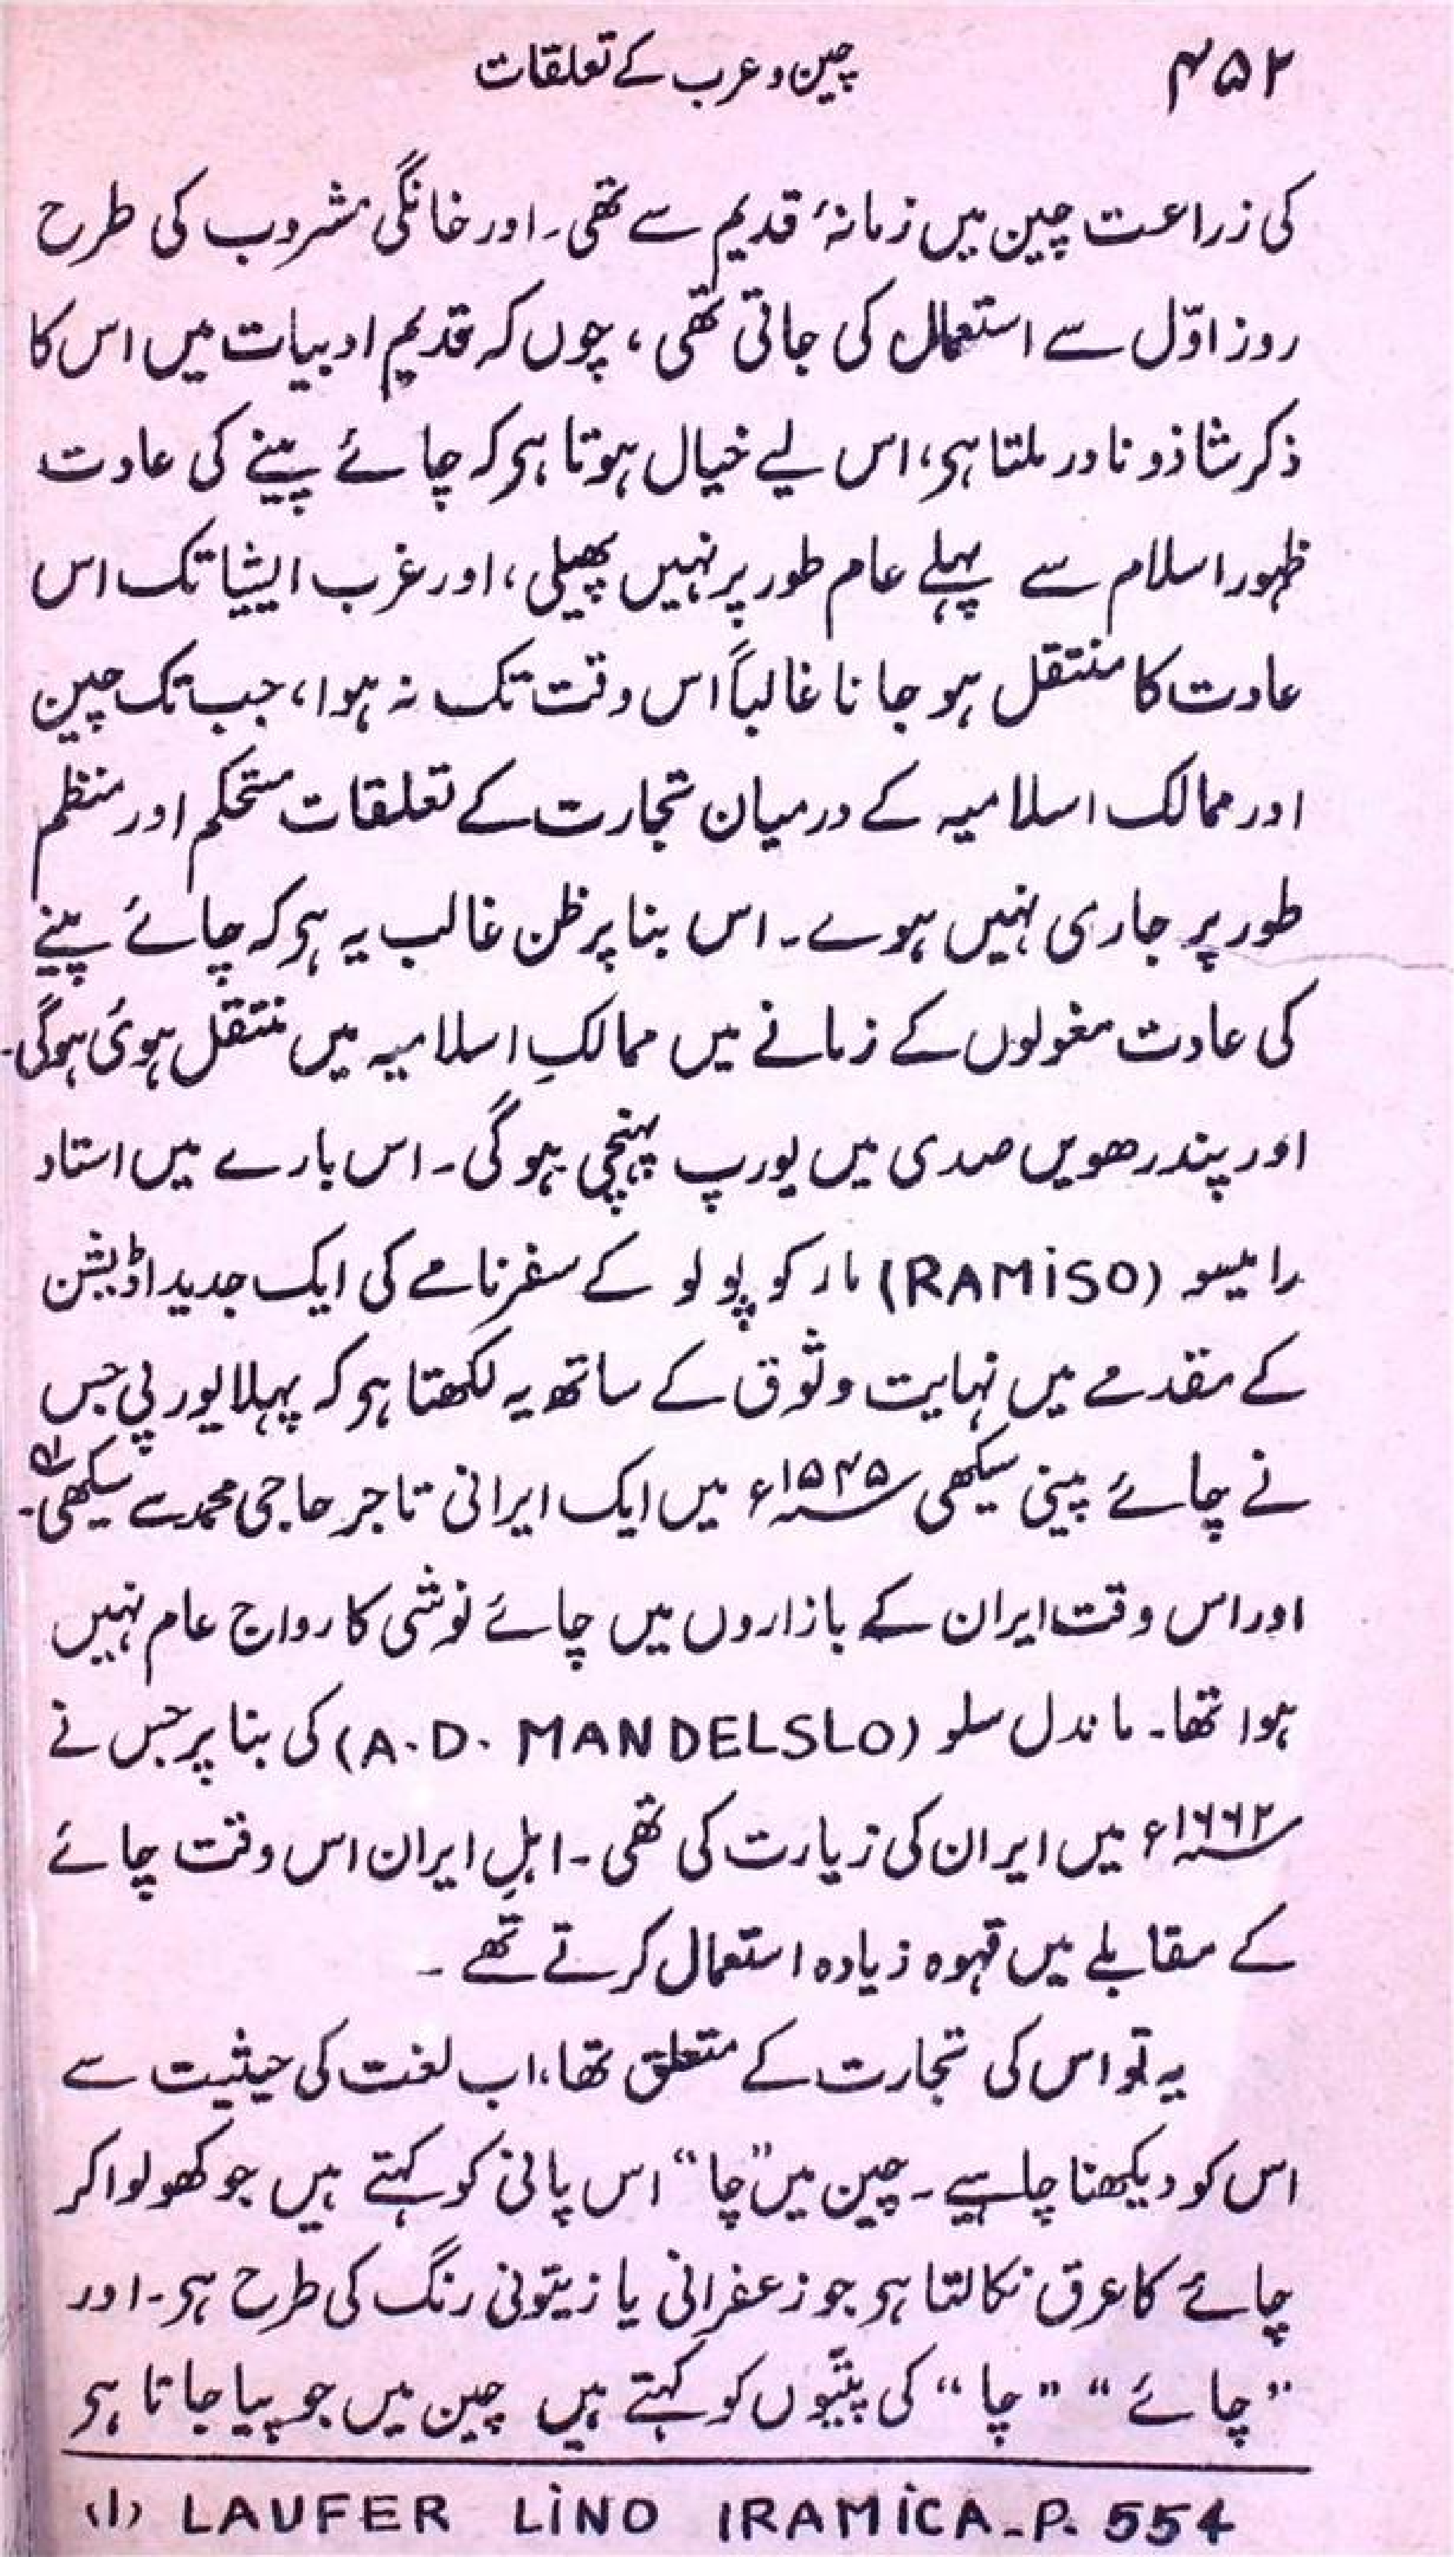 ۴۵۲ چین و عرب کے تعلقات
کی زراعت چین میں زمانۂ قدیم سے تھی۔ اور خانگی مشروب کی طرح
روز اوّل سے استعمال کی جاتی تھی، چوں کہ قدیم ادبیات میں اس کا
ذکر شاذ و نادر ملتا ہی، اس لیے خیال ہوتا ہی کہ چائے پینے کی عادت
ظہور اسلام سے پہلے عام طور پر نہیں پھیلی، اور غرب ایشیا تک اس
عادت کا منتقل ہو جانا غالباً اس وقت تک نہ ہوا، جب تک چین
اور ممالک اسلامیہ کے درمیان تجارت کے تعلقات مستحکم اور منظم
طور پر جاری نہیں ہوے۔ اس بنا پر ظن غالب یہ ہی کہ چائے پینے
کی عادت مغولوں کے زمانے میں ممالکِ اسلامیہ میں منتقل ہوئ ہوگی۔
اور پندرھویں صدی میں یورپ پہنچی ہوگی۔ اس بارے میں استاد
رامیسو (RAMiSO) مارکو پولو کے سفرنامے کی ایک جدید اڈیشن
کے مقدمے میں نہایت وثوق کے ساتھ یہ لکھتا ہی کہ پہلا یورپی جس
نے چائے پینی سیکھی ۱۵۴۵ء میں ایک ایرانی تاجر حاجی محمد سے سیکھی۔
اور اس وقت ایران کے بازاروں میں چائے نوشی کا رواج عام نہیں
ہوا تھا۔ ماندل سلو (A.D. MANDELSLO) کی بنا پر جس نے
۱۶۶۲ء میں ایران کی زیارت کی تھی۔ اہلِ ایران اس وقت چائے
کے مقابلے میں قہوہ زیادہ استعمال کرتے تھے۔
یہ تو اس کی تجارت کے متعلق تھا، اب لغت کی حیثیت سے
اس کو دیکھنا چاہیے۔ چین میں "چا" اس پانی کو کہتے ہیں جو کھولوا کر
چائے کا عرق نکالتا ہی جو زعفرانی یا زیتونی رنگ کی طرح ہی۔ اور
"چائے" "چا" کی پتّیوں کو کہتے ہیں چین میں جو پیا جاتا ہی
(۱) LAUFER LiNO IRAMiCA_P. 554